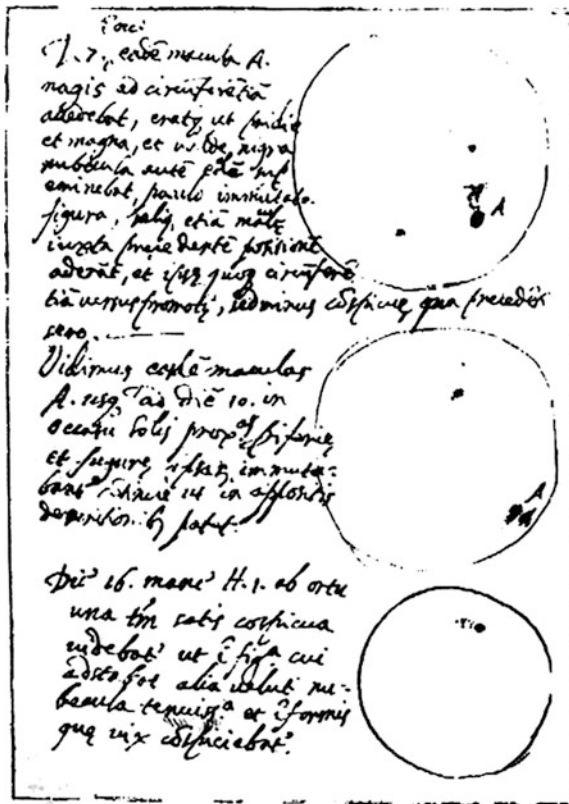 D. 7. eadē macula A.
magis ad circūferētiā
accedebat, eratq, ut pridie
et magna, et valde, nigra
nubecula autē
eminebat, paulo immutata
figura, reliq, etiā
iuxta precedentē positionē
aderāt, et ipsę quoq, circūferē
tiā versus promotę, sed minus cōspicuę qua precedēti
sero.
A
Vidimus easdē maculas
A. usq ad diē 10. in
occasu Solis
et figurę ipsarū immuta-
bant ut in appositis
patet.
A
Die 16. mane H. 1. ab ortu
una tm̄ satis cōspicua
videbat ut ī figa cui
adstabat alia velut nu-
becula tenuissa et īformis
quę vix cōspiciebat.